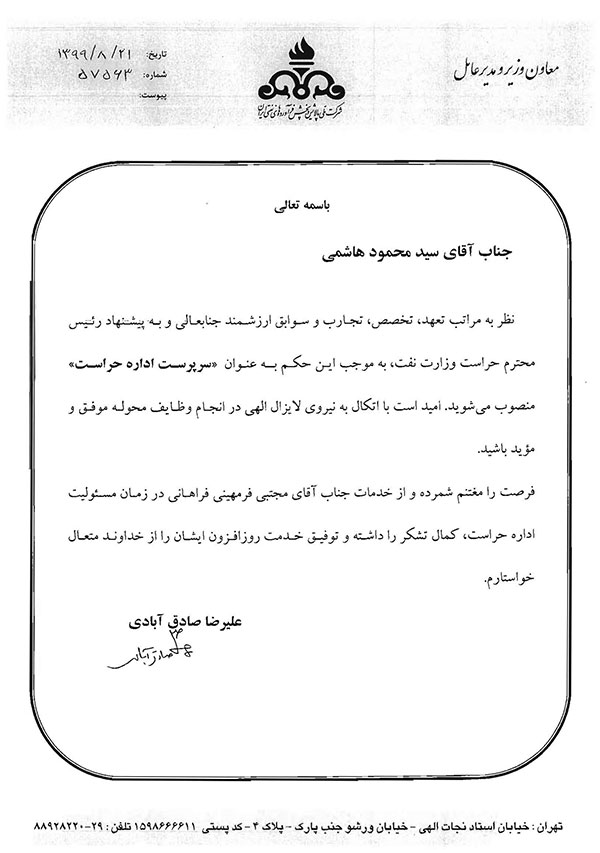 معاون وزیر و مدیر عامل
شرکت ملی پالایش و پخش فرآورده‌های نفتی ایران
تاریخ: ۱۳۹۹/۸/۲۱
شماره: ۵۷۵۶۳
پیوست:
باسمه تعالی
جناب آقای سید محمود هاشمی
نظر به مراتب تعهد، تخصص، تجارب و سوابق ارزشمند جنابعالی و به پیشنهاد رئیس
محترم حراست وزارت نفت، به موجب این حکم به عنوان «سرپرست اداره حراست»
منصوب می‌شوید. امید است با اتکال به نیروی لایزال الهی در انجام وظایف محوله موفق و
مؤید باشید.
فرصت را مغتنم شمرده و از خدمات جناب آقای مجتبی فرمهینی فراهانی در زمان مسئولیت
اداره حراست، کمال تشکر را داشته و توفیق خدمت روزافزون ایشان را از خداوند متعال
خواستارم.
علیرضا صادق آبادی
صادق آبادی
تهران : خیابان استاد نجات الهی - خیابان ورشو جنب پارک - پلاک ۴ - کد پستی ۱۵۹۸۶۶۶۶۱۱ تلفن : ۲۹-۸۸۹۲۸۲۲۰